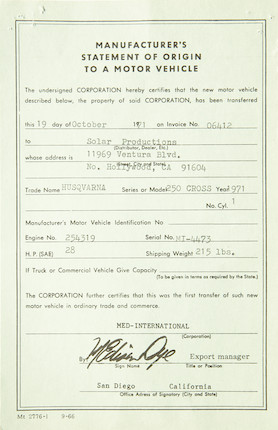 MANUFACTURER'S
STATEMENT OF ORIGIN
TO A MOTOR VEHICLE
The undersigned CORPORATION hereby certifies that the new motor vehicle
described below, the property of said CORPORATION, has been transferred
this 19 day of October 1971 on Invoice No. 06412
to Solar Productions
(Distributor, Dealer, Etc.)
whose address is 11969 Ventura Blvd.
(Street, City, State)
No. Hollywood, CA 91604
Trade Name HUSQVARNA Series or Model 250 CROSS Year 1971
No. Cyl. 1
Manufacturer's Motor Vehicle Identification No
Engine No. 254319 Serial No. MI-4473
H. P. (SAE) 28 Shipping Weight 215 lbs.
If Truck or Commercial Vehicle Give Capacity
(To be given in terms as required by the State.)
The CORPORATION further certifies that this was the first transfer of such new
motor vehicle in ordinary trade and commerce.
MED-INTERNATIONAL
(Corporation)
By Export manager
Sign Name Title or Position
San Diego California
Office Adress of Signatory (City and State)
MS 3776-1 9-66